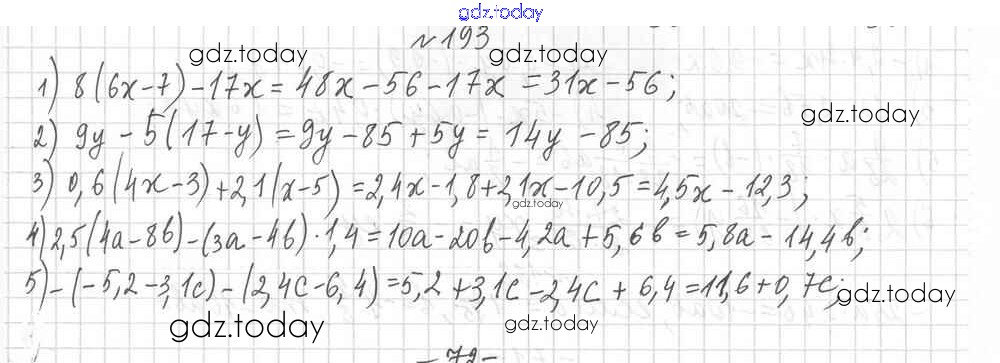 gdz.today
№193
gdz.today gdz.today
1) 8(6x-7)-17x = 48x-56-17x = 31x-56;
gdz.today
2) 9y-5(17-y) = 9y-85+5y = 14y-85;
3) 0,6(4x-3)+2,1(x-5) = 2,4x-1,8+2,1x-10,5 = 4,5x-12,3;
gdz.today
4) 2,5(4a-8b)-(3a-4b)·1,4 = 10a-20b-4,2a+5,6b = 5,8a-14,4b;
5) -(-5,2-3,1c)-(2,4c-6,4) = 5,2+3,1c-2,4c+6,4 = 11,6+0,7c;
gdz.today
gdz.today gdz.today
- 72 -